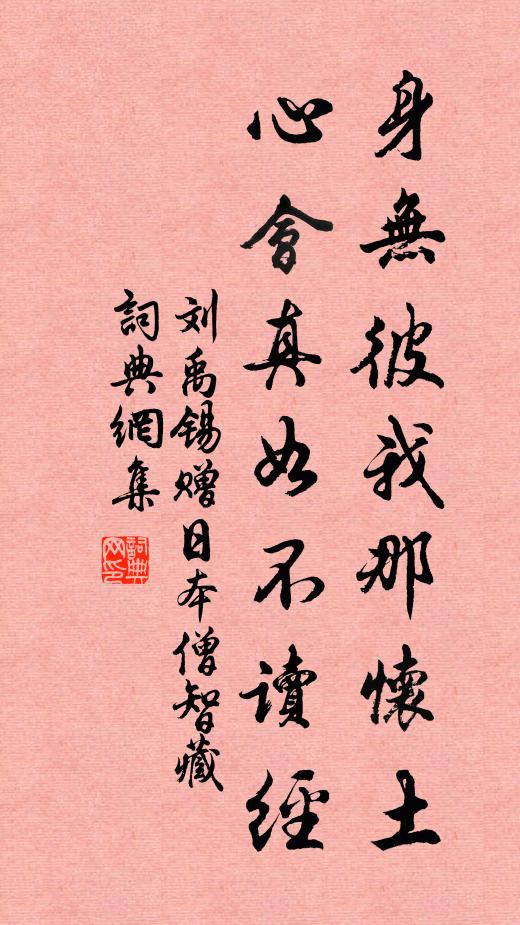 身無彼我那懷土
心會真如不讀經
刘禹锡赠日本僧智藏
詞典網集
詞典網印